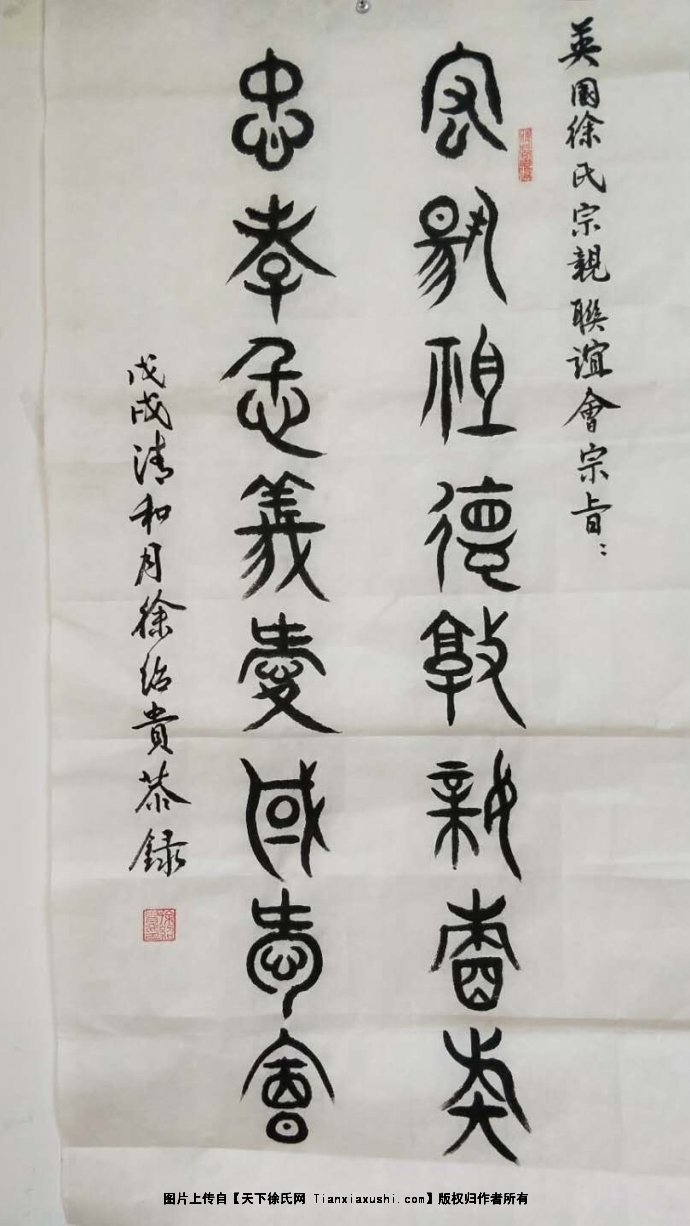 英國徐氏宗親聯誼會宗旨：
宏揚祖德敦親睦族
忠孝仁義愛國愛會
戊戌清和月徐紹貴恭錄
图片上传自【天下徐氏网 Tianxiaxushi.com】版权归作者所有